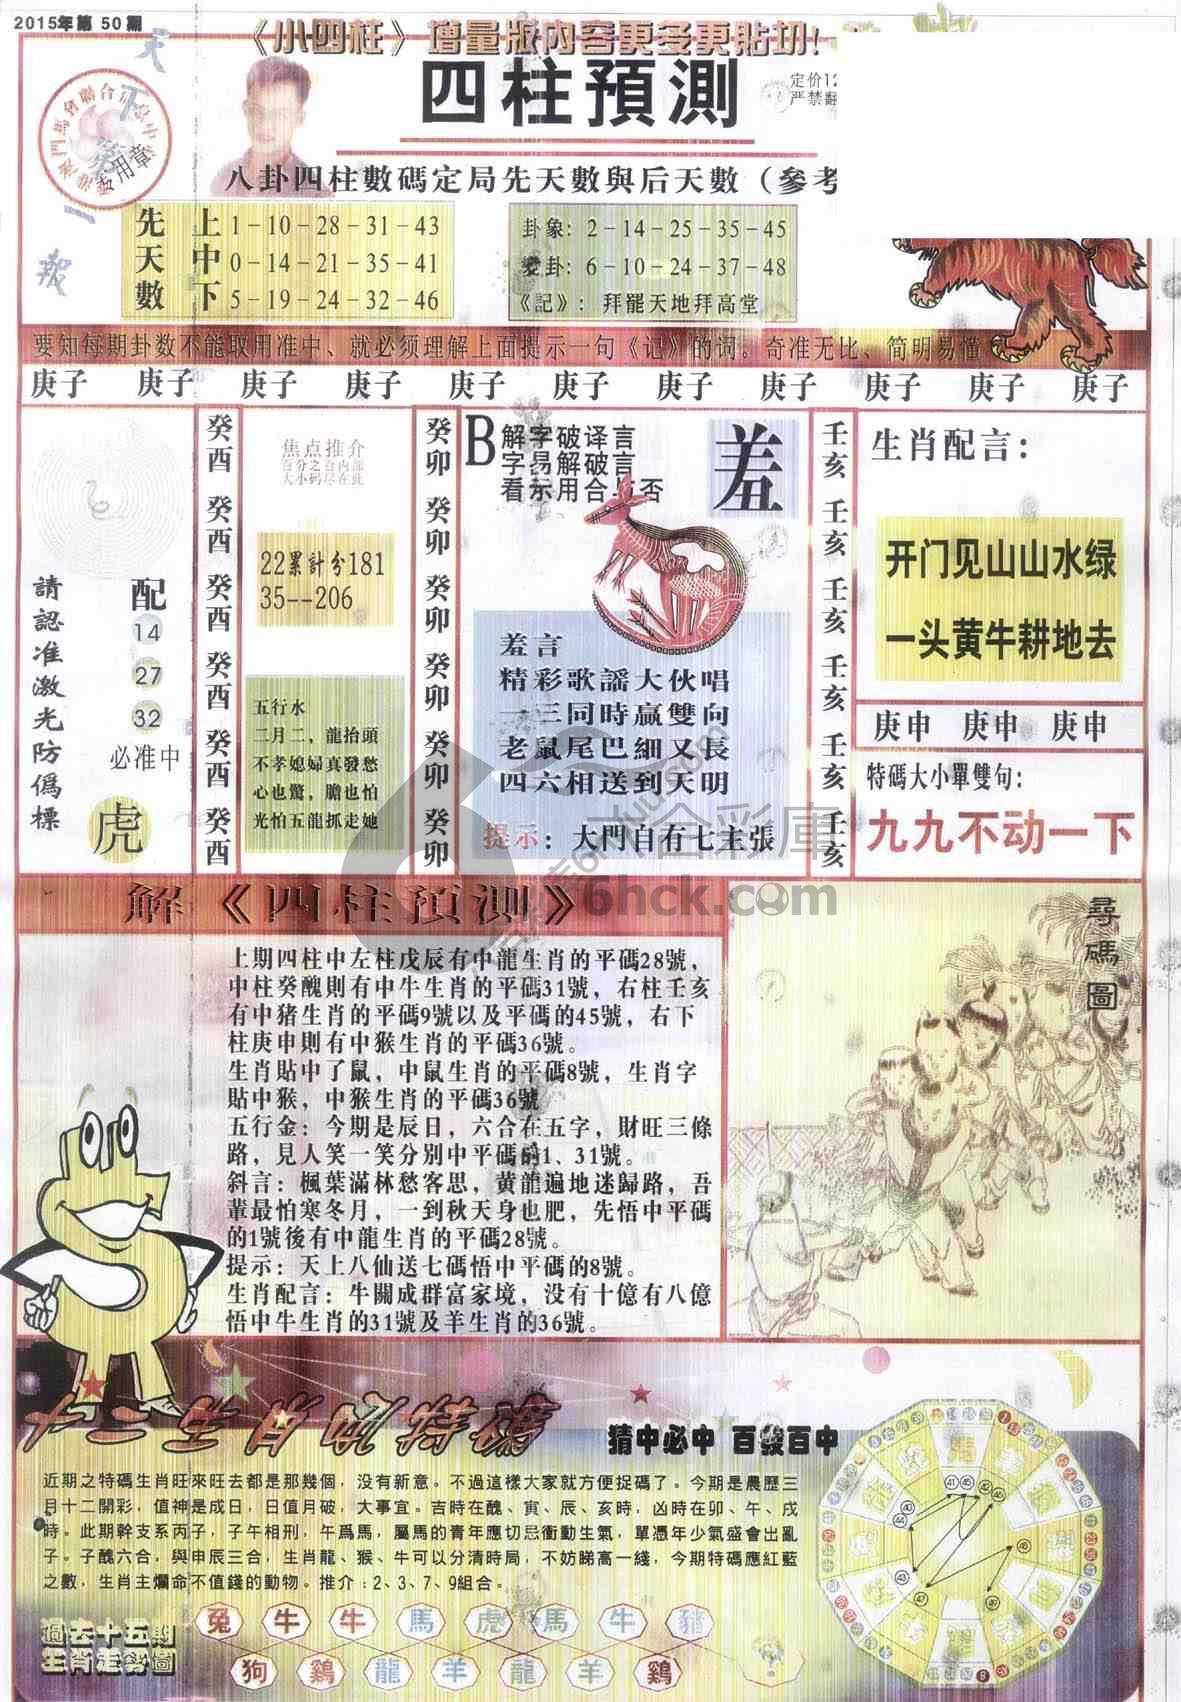 2015年第 50 期
《小四柱》增量版內容更多更貼切!
四柱預測
定价12
严禁翻
八卦四柱數碼定局先天數與后天數（參考
天
下
第
一
報
先天數
上 1－10－28－31－43
中 0－14－21－35－41
下 5－19－24－32－46
卦象: 2－14－25－35－45
變卦: 6－10－24－37－48
《記》: 拜罷天地拜高堂
要知每期卦数不能取用准中、就必须理解上面提示一句《记》的词。奇准无比、简明易懂
庚子 庚子 庚子 庚子 庚子 庚子 庚子 庚子 庚子 庚子 庚子
請認准激光防僞標
配
14
27
32
必准中
虎
癸酉 癸酉 癸酉 癸酉 癸酉 癸酉
焦点推介
百分之百内部
大小码尽在此
22累計分181
35--206
五行水
二月二，龍抬頭
不孝媳婦真發愁
心也驚，膽也怕
光怕五龍抓走她
癸卯 癸卯 癸卯 癸卯 癸卯 癸卯
B
解字破译言
字易解破言
看示用合与否
羞
羞言
精彩歌謠大伙唱
一三同時贏雙向
老鼠尾巴細又長
四六相送到天明
提示: 大門自有七主張
壬亥 壬亥 壬亥 壬亥 壬亥 壬亥
生肖配言:
开门见山山水绿
一头黄牛耕地去
庚申 庚申 庚申
特碼大小單雙句:
九九不动一下
六合彩庫
6hck.com
解《四柱預測》
上期四柱中左柱戊辰有中龍生肖的平碼28號，
中柱癸醜則有中牛生肖的平碼31號，右柱壬亥
有中猪生肖的平碼9號以及平碼的45號，右下
柱庚申則有中猴生肖的平碼36號。
生肖貼中了鼠，中鼠生肖的平碼8號，生肖字
貼中猴，中猴生肖的平碼36號
五行金: 今期是辰日，六合在五字，財旺三條
路，見人笑一笑分別中平碼的1、31號。
斜言: 楓葉滿林愁客思，黄龍遍地迷歸路，吾
輩最怕寒冬月，一到秋天身也肥，先悟中平碼
的1號後有中龍生肖的平碼28號。
提示: 天上八仙送七碼悟中平碼的8號。
生肖配言: 牛關成群富家境，没有十億有八億
悟中牛生肖的31號及羊生肖的36號。
尋碼圖
猜中必中 百發百中
近期之特碼生肖旺來旺去都是那幾個，没有新意。不過這樣大家就方便捉碼了。今期是農歷三
月十二開彩，值神是成日，日值月破，大事宜。吉時在醜、寅、辰、亥時，凶時在卯、午、戌
時。此期幹支系丙子，子午相刑，午爲馬，屬馬的青年應切忌衝動生氣，單憑年少氣盛會出亂
子。子醜六合，與申辰三合，生肖龍、猴、牛可以分清時局，不妨睇高一綫，今期特碼應紅藍
之數，生肖主爛命不值錢的動物。推介: 2、3、7、9組合。
過去十五期
生肖走勢圖
兔 牛 牛 馬 虎 馬 牛 豬
狗 鷄 龍 羊 龍 羊 鷄